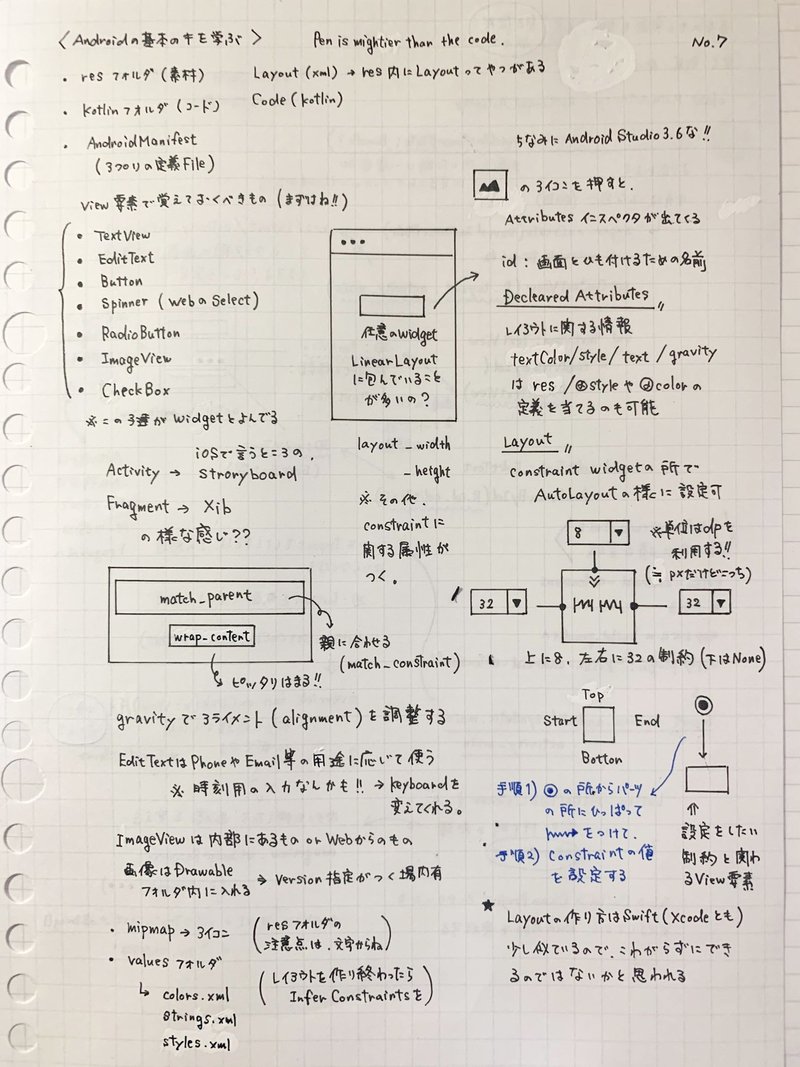 〈Androidの基本のキを学ぶ〉
Pen is mightier than the code.
No.7
・res フォルダ (素材)
・Kotlin フォルダ (コード)
・AndroidManifest
(アプリの定義File)
Layout (xml) → res 内に Layout ってやつがある
Code (kotlin)
View 要素で覚えておくべきもの (まずはね!!)
• TextView
• EditText
• Button
• Spinner (WebのSelect)
• RadioButton
• ImageView
• CheckBox
※ この3連が Widget とよんでる
iOSで言うところの、
Activity → stroryboard
Fragment → Xib
の様な感じ??
任意のwidget
LinearLayout
に包んでいること
が多いの?
layout _ width
_ height
※ その他、
constraint に
関する属性が
つく。
ちなみに Android Studio 3.6な!!
のアイコンを押すと、
Attributes インスペクタが出てくる
id : 画面とひも付けるための名前
Decleared Attributes
レイアウトに関する情報
textColor/style / text / gravity
は res / @style や @color の
定義を当てるのも可能
Layout
constraint widget の所で
AutoLayout の様に設定可
8 ▼
※単位はdpを
利用する!!
(≒ pxだけどこっち)
32 ▼
32 ▼
上に8、左右に32の制約 (下はNone)
match_parent
wrap_content
親に合わせる
(match_constraint)
ピッタリはまる!!
gravity で アライメント (alignment) を調整する
EditText は Phone や Email 等の用途に応じて使う
※ 時刻用の入力なんかも!! → keyboardを
変えてくれる。
ImageView は 内部にあるもの or Webからのもの
画像は Drawable
フォルダ内に入れる
→ Version 指定がつく場内有
・mipmap → アイコン
(resフォルダの
注意点は、文字からね)
・values フォルダ
↳ colors.xml
strings.xml
styles.xml
(レイアウトを作り終わったら
Infer Constraintsを)
Top
Start
End
Botton
手順1) ◉ の所からパーツ
の所にひっぱって
をつけて、
手順2) Constraintの値
を設定する
⇑
設定をしたい
制約と関わ
るView要素
★ Layoutの作り方はSwift (Xcodeとも)
少し似ているので、こわがらずにでき
るのではないかと思われる